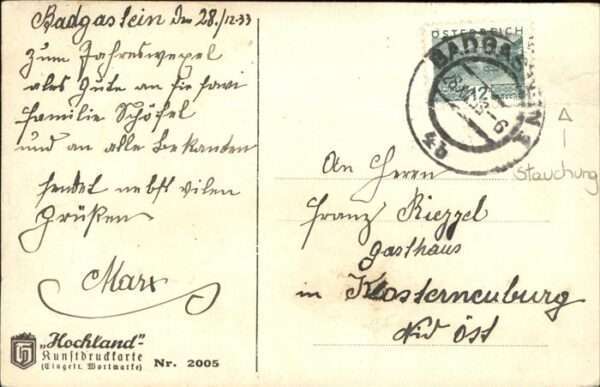 Badgastein den 28./12.33
zum Jahreswexel
ales Gute an Sie sowi
Familie Schöfel
und an alle Bekanten
sendet nebst vilen
Grüßen
Marx
„Hochland“-
Kunstdruckkarte
(Eingetr. Wortmarke)
Nr. 2005
ÖSTERREICH
BADGASTEIN 1
12
4b
Stauchung
An Herrn
Franz Riezzel
Gasthaus
in Klosterneuburg
Nid Öst